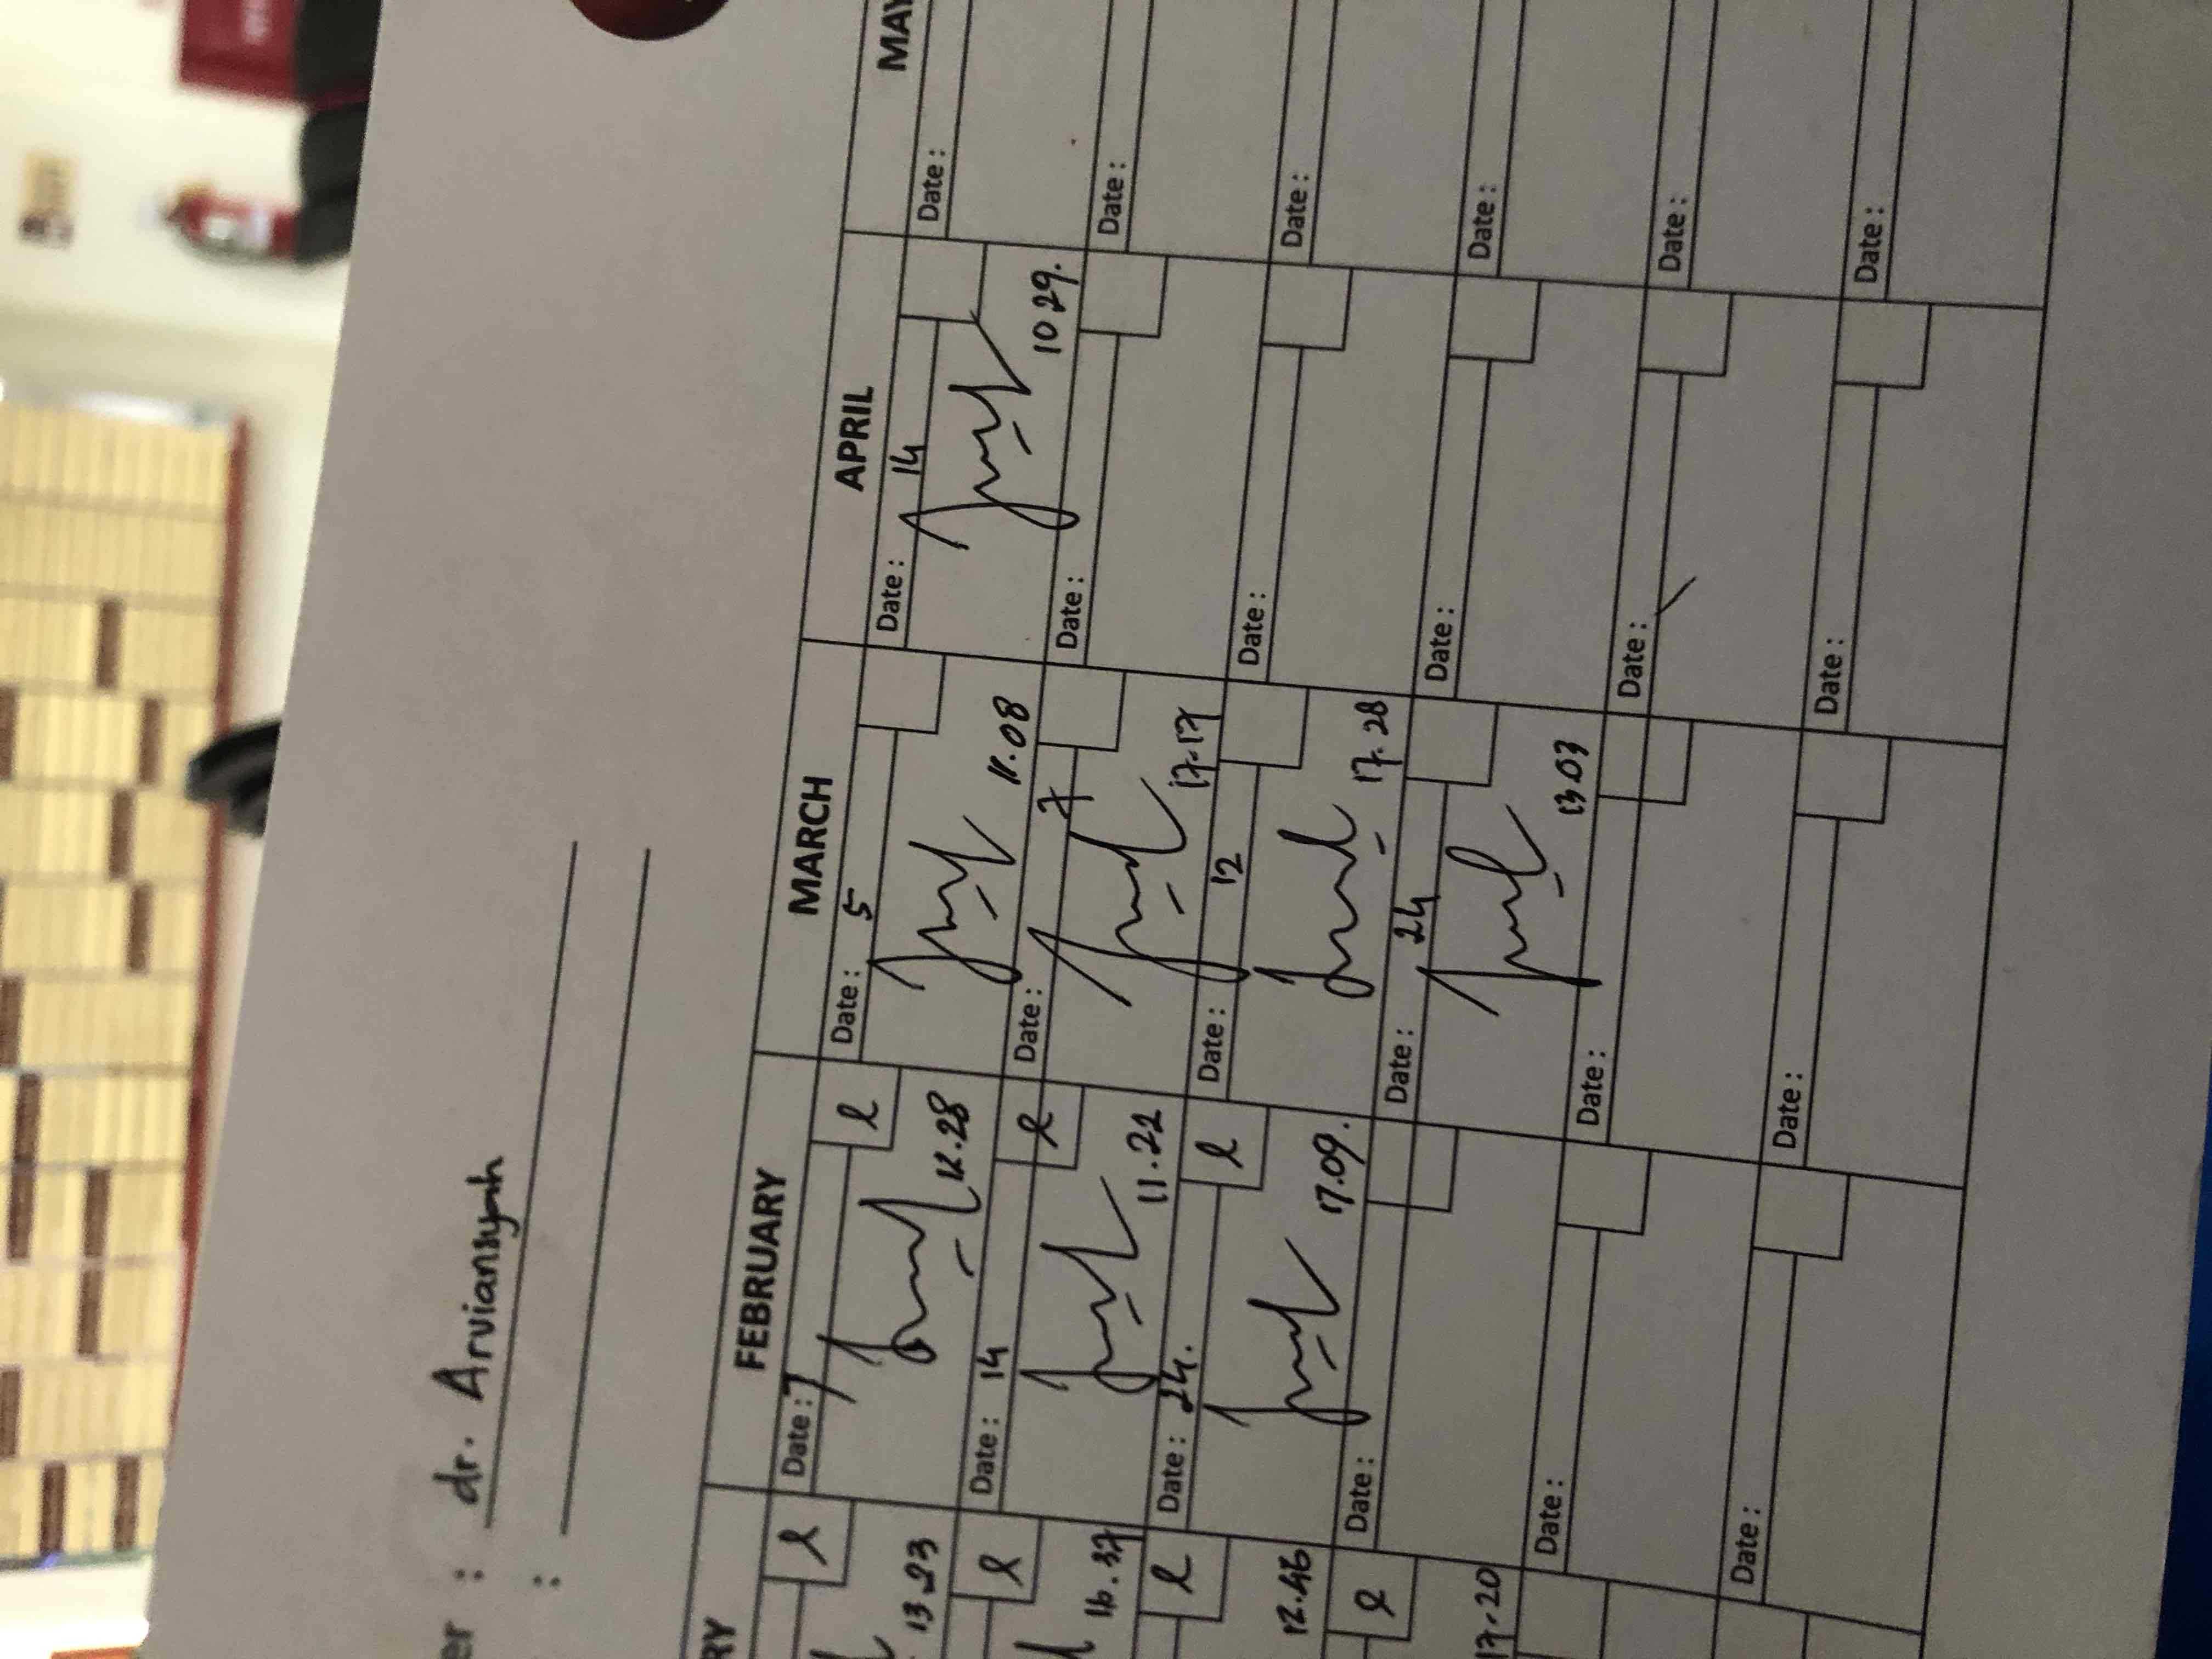 er : dr. Arviansyah
:
RY FEBRUARY MARCH APRIL MAY
l Date: 7 l Date: 5 Date: 14 Date:
13.23 12.28 11.08 10 29.
l Date: 14 l Date: 7 Date: Date:
16.37 11.22 17.17
l Date: 24. l Date: 12 Date: Date:
12.46 17.09. 17.28
l Date: Date: 24 Date: Date:
17.20 13.03
Date: Date: Date: Date:
Date: Date: Date: Date: